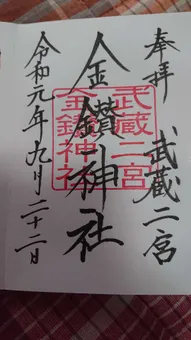 奉拝 武蔵二宮
金鑚神社
令和元年九月二十二日
武蔵二宮
金鑚神社